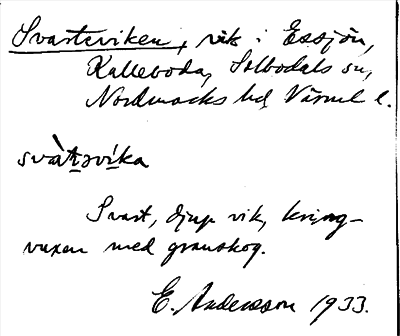 Svarteviken, vik i Essjön,
Kalleboda, Silbodals sn,
Nordmarks hd, Värml l.
svàt̠əvíka
Svart, djup vik, kring-
vuxen med granskog.
E. Andersson 1933.